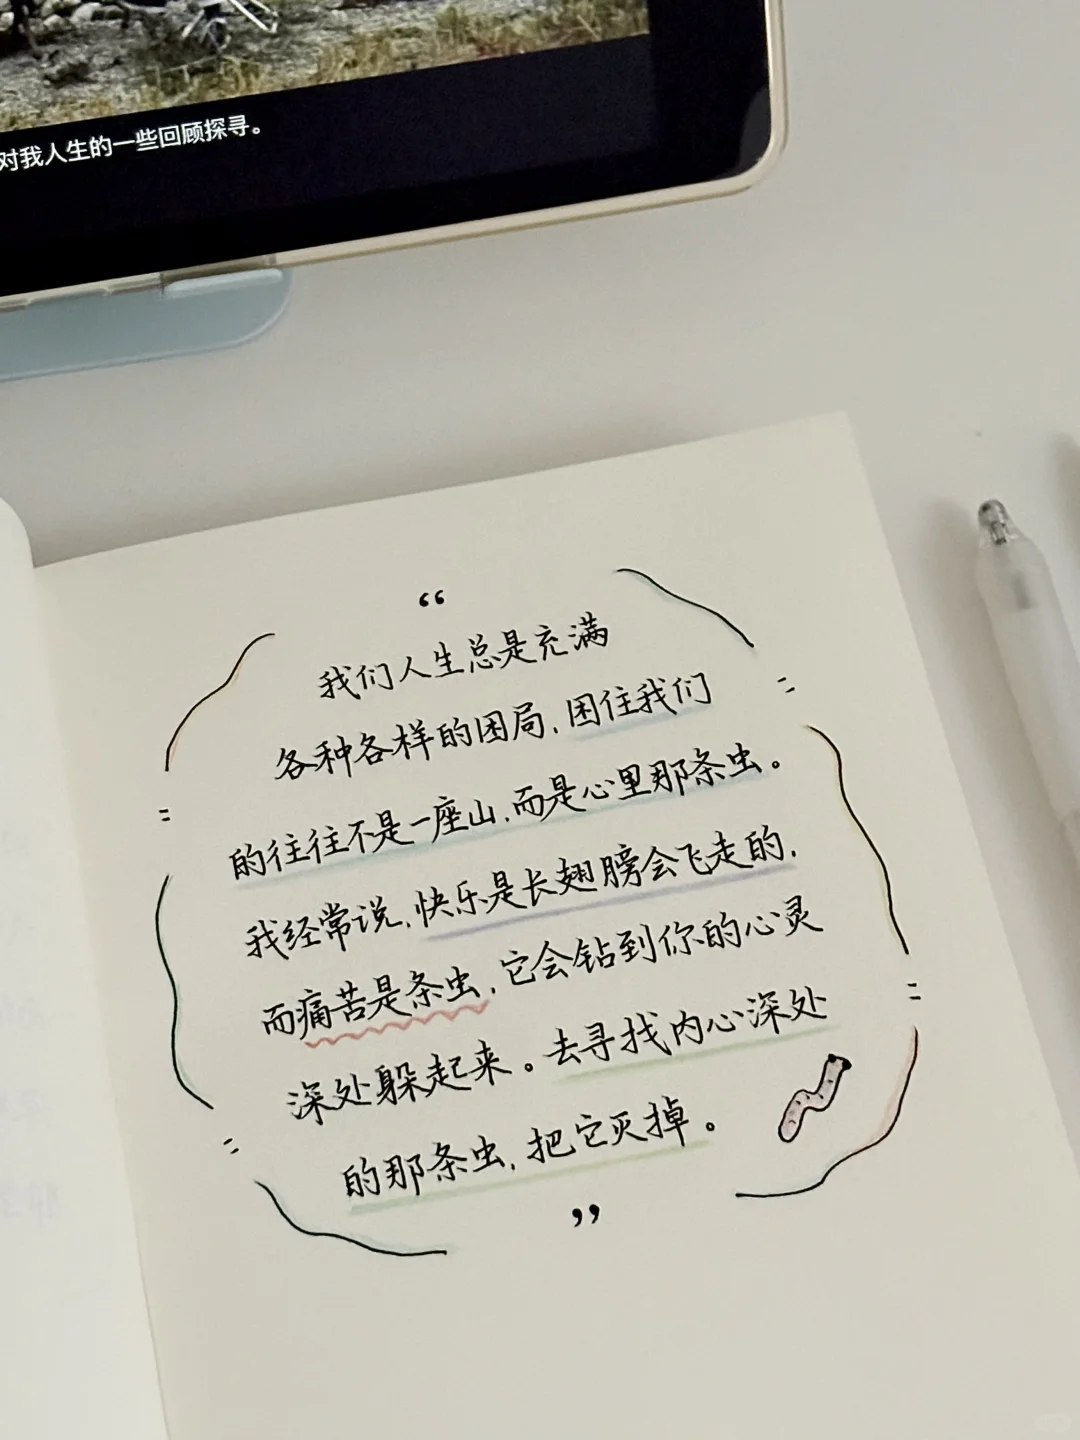 对我人生的一些回顾探寻。
“
我们人生总是充满
各种各样的困局,困住我们
的往往不是一座山,而是心里那条虫。
我经常说,快乐是长翅膀会飞走的,
而痛苦是条虫,它会钻到你的心灵
深处躲起来。去寻找内心深处
的那条虫,把它灭掉。
”